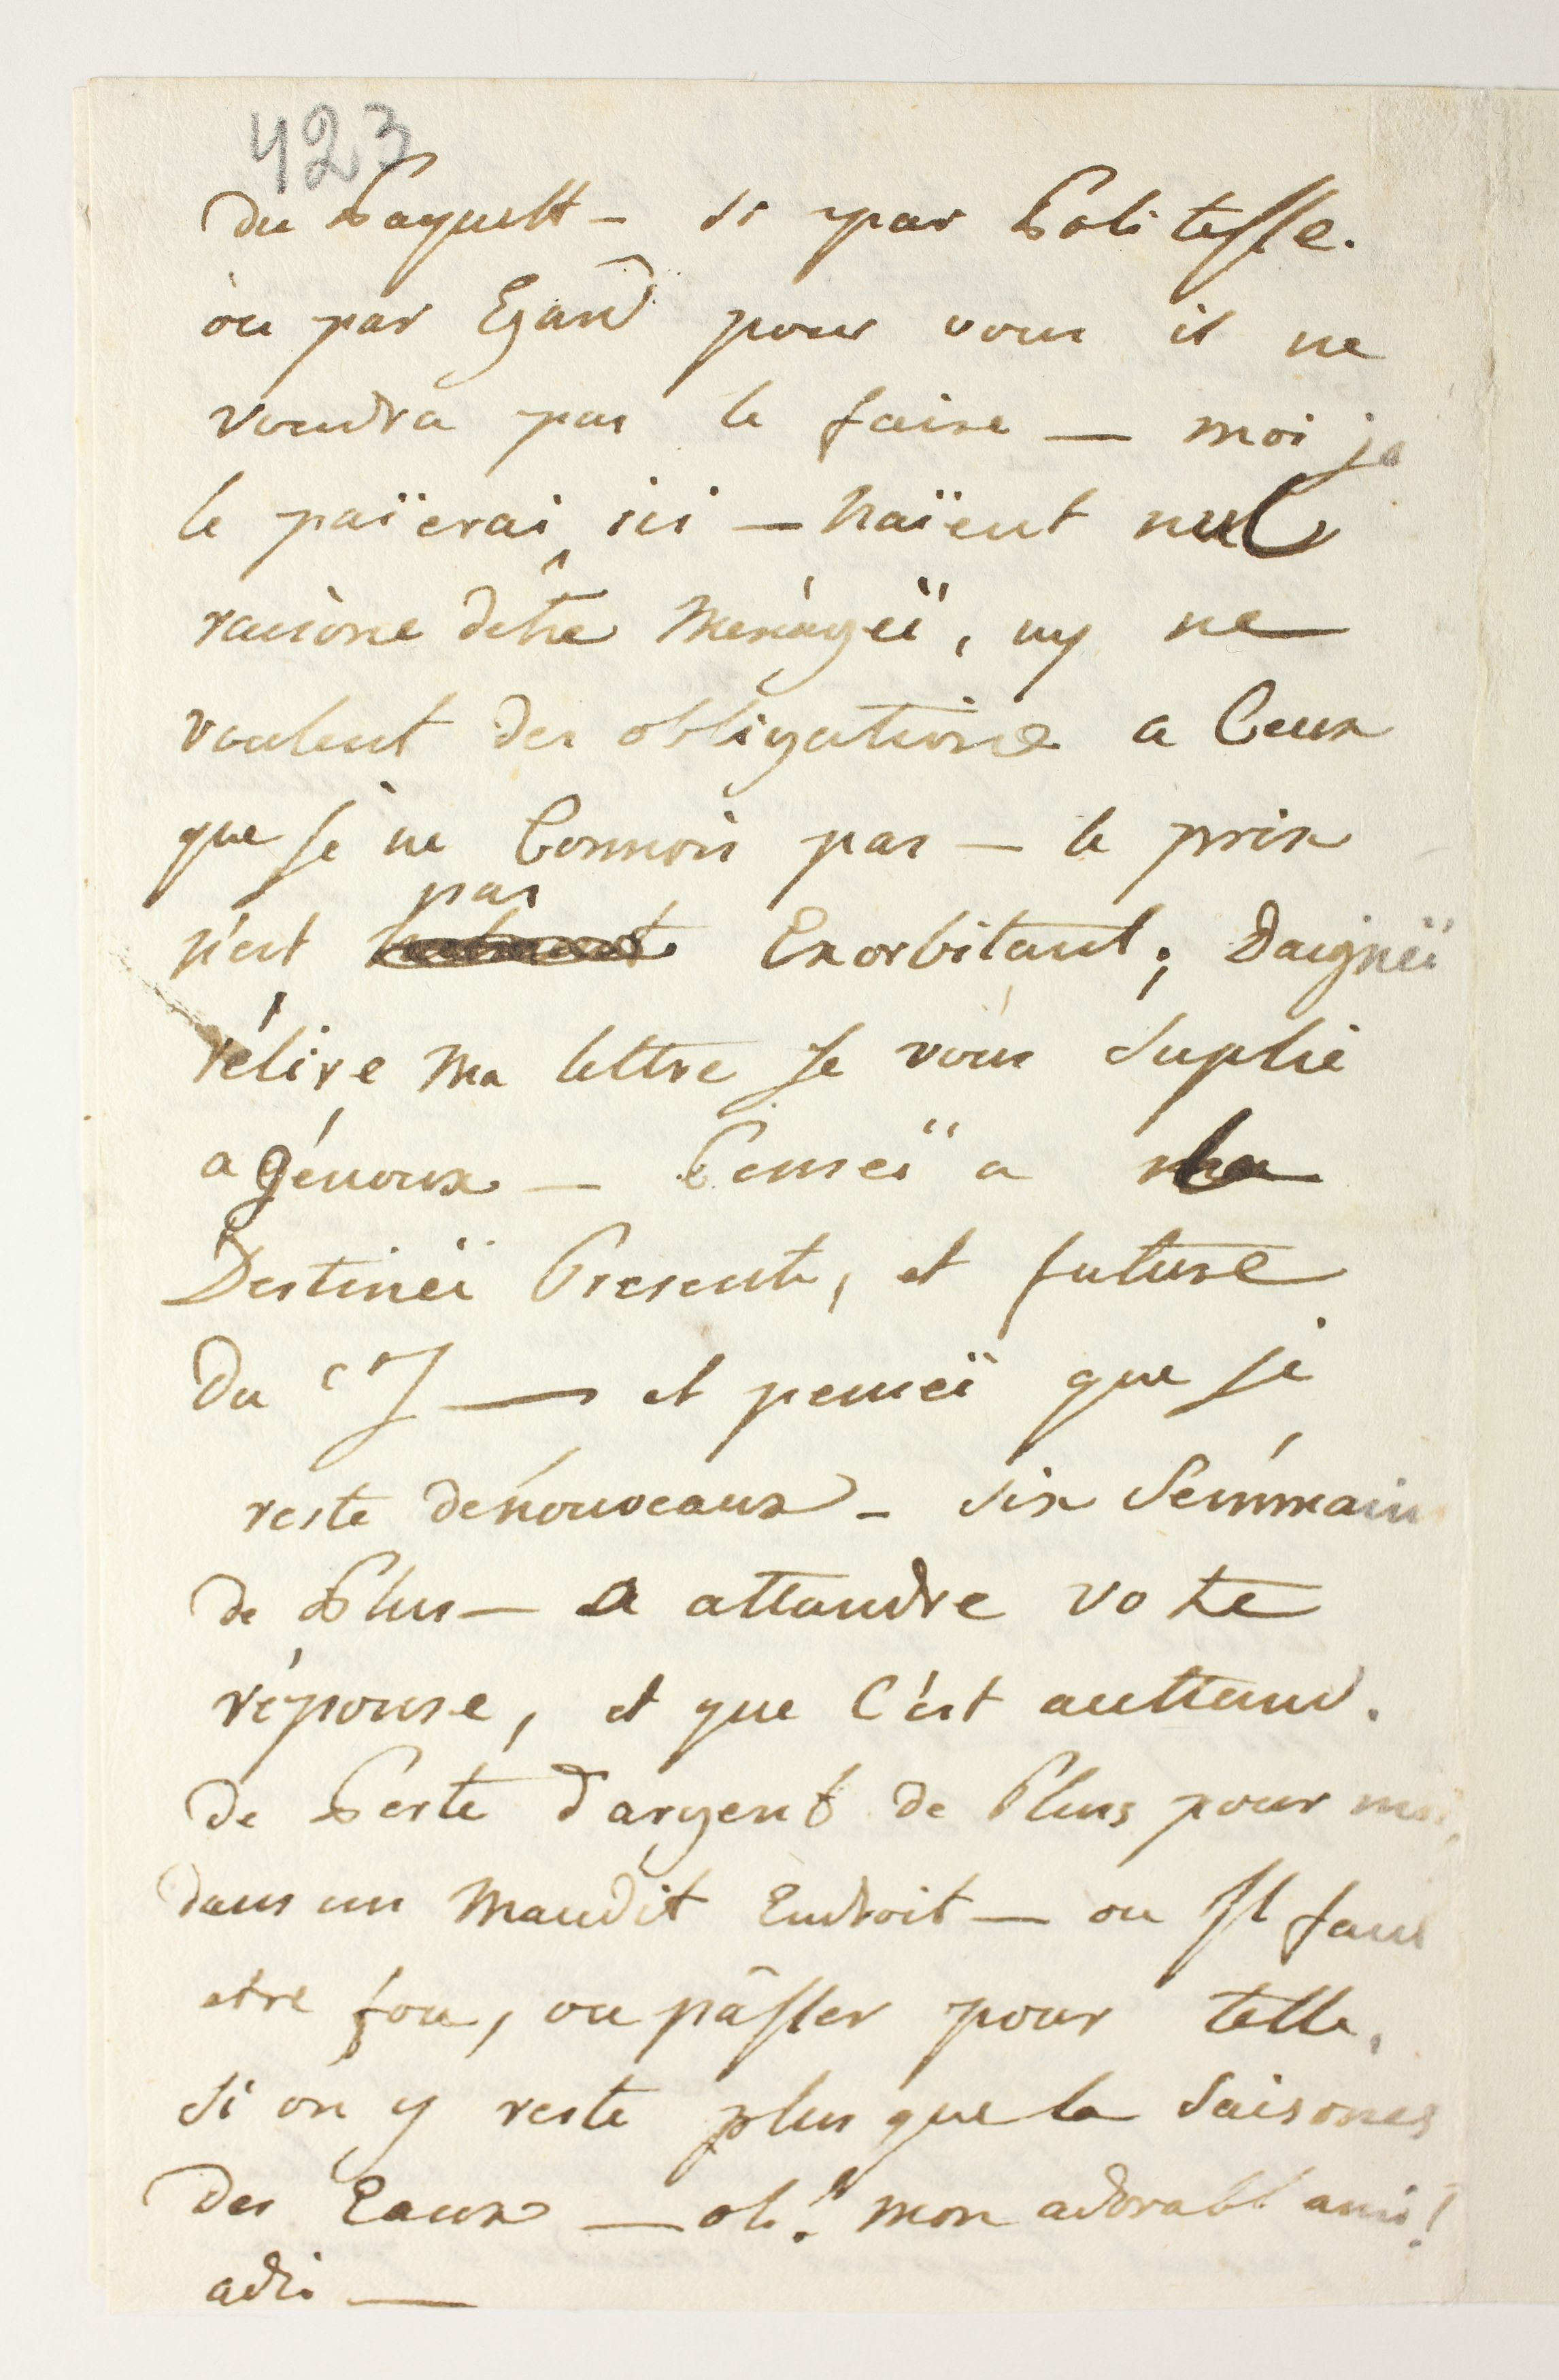 423
du Paquett - si par Politesse.
ou par Egard pour vous il ne
voudra pas le faire — moi je
le païerai ici — naïent nul
raisone dêtre Menágeï, ny ne
voulent des obligatione a Ceux
que je ne Connois pas — le prix
n'est pas Exorbitant; Daigneï
rélire Ma lettre Je vous Suplie
a génoux — Penseï a ma
Destinéï Presente, et future
Du — et penseï que je
reste dénouveaux - Six Sémmain
de Plus — a attandre vote
réponse, et que C'ést auttand.
de Perte d'argent de Plus pour moi,
dans un Maudit Endroit — ou Il faut
etre fou, ou pâsser pour telle,
Si on y reste plus que la Saisones
des Eaux — oh! mon adorabl ami!
adi —